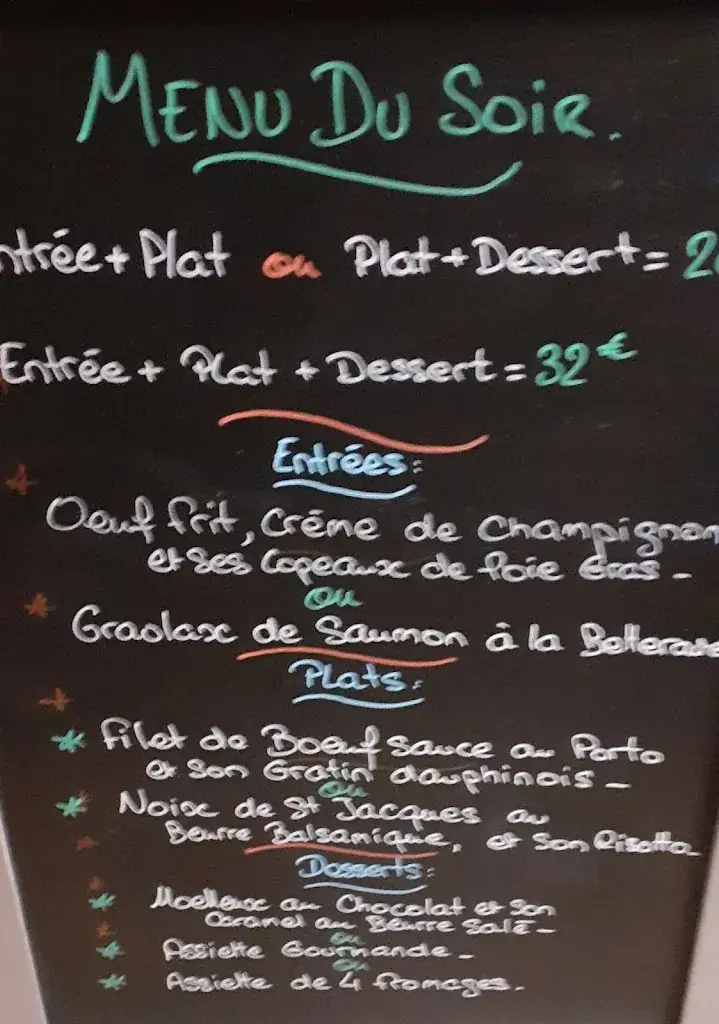 MENU DU SOIR.
ntrée + Plat ou Plat + Dessert = 2
Entrée + Plat + Dessert = 32 €
Entrées:
Oeuf frit, Crême de Champignon
et Ses Copeaux de foie Gras -
ou
Graolax de Saumon à la Betterave
Plats:
* Filet de Boeuf sauce au Porto
et Son Gratin dauphinois -
ou
* Noix de St Jacques au
Beurre Balsamique, et Son Risotto
Desserts:
* Moelleux au Chocolat et Son
Caramel au Beurre Salé -
ou
* Assiette Gourmande -
ou
* Assiette de 4 fromages.